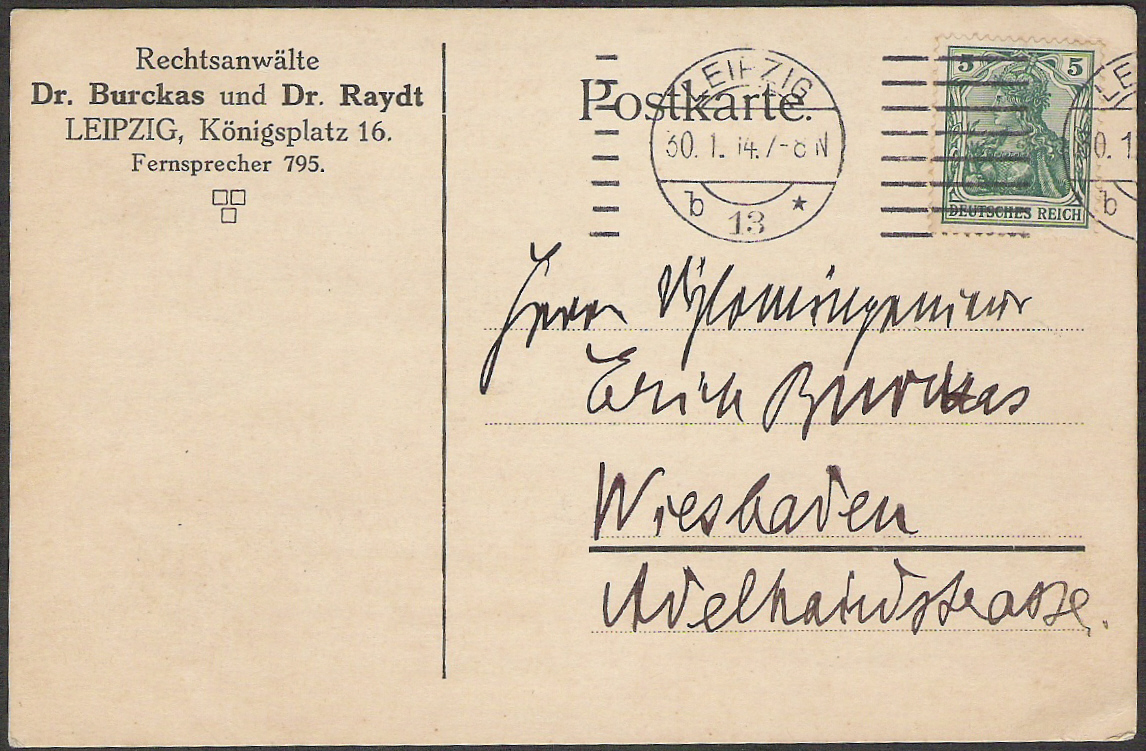 Rechtsanwälte
Dr. Burckas und Dr. Raydt
LEIPZIG, Königsplatz 16.
Fernsprecher 795.
Postkarte.
LEIPZIG
30. 1. 14. 7-8 N
b 13 *
5 5
DEUTSCHES REICH
LE
30. 1
b
Herrn Diplomingenieur
Erich Burckas
Wiesbaden
Adelhaidstrasse.